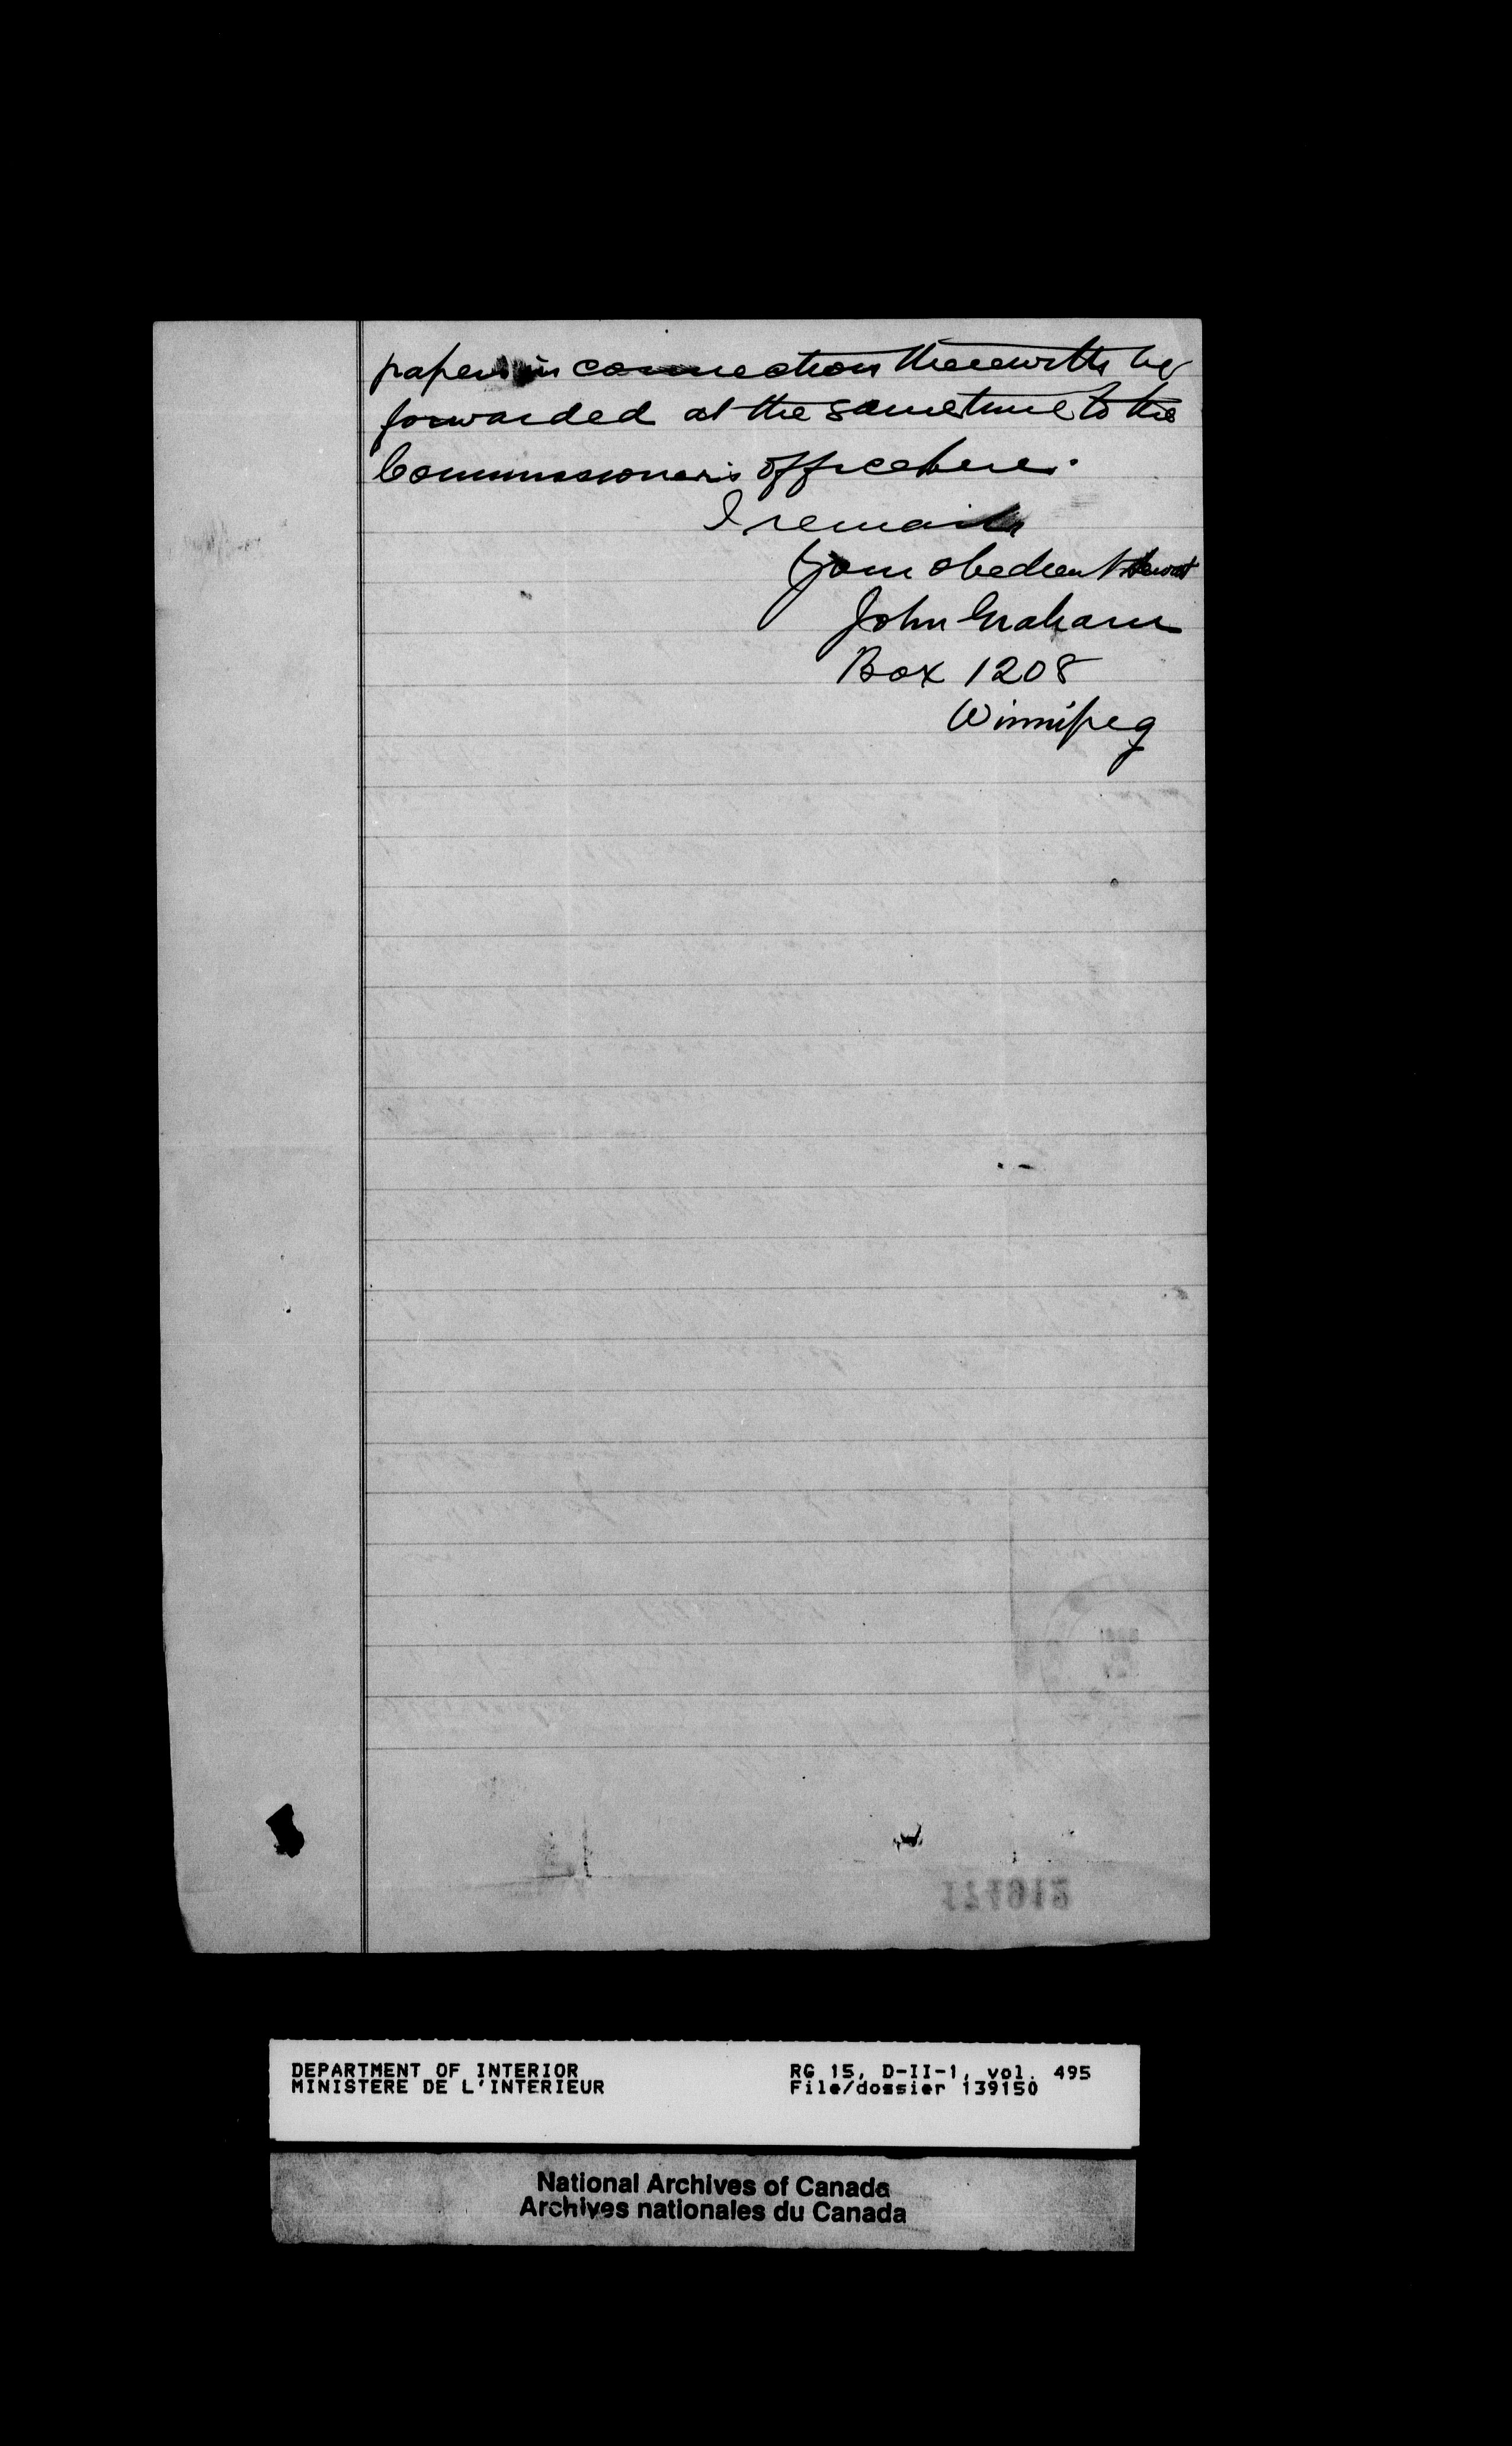 papers in connection therewith be
forwarded at the same time to the
Commissioner's office here.
I remain
Your obedient Servt
John Graham
Box 1208
Winnipeg
174912
DEPARTMENT OF INTERIOR
MINISTERE DE L'INTERIEUR
RG 15, D-II-1, vol. 495
File/dossier 139150
National Archives of Canada
Archives nationales du Canada